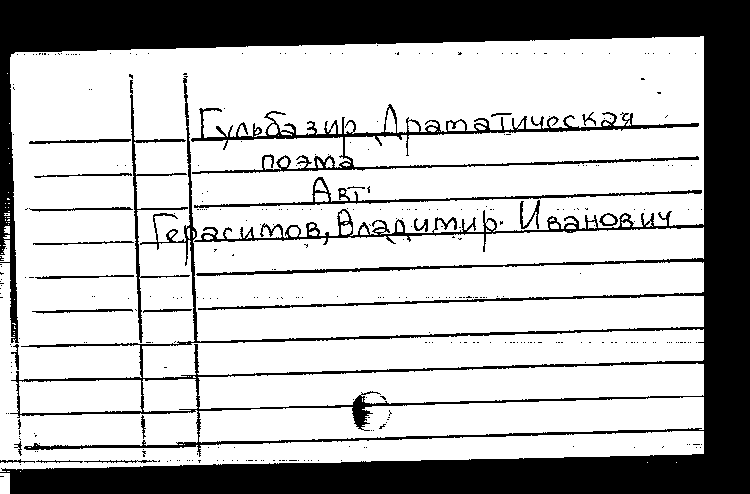 Гульбазир Драматическая
поэма
Авт.
Герасимов, Владимир. Иванович